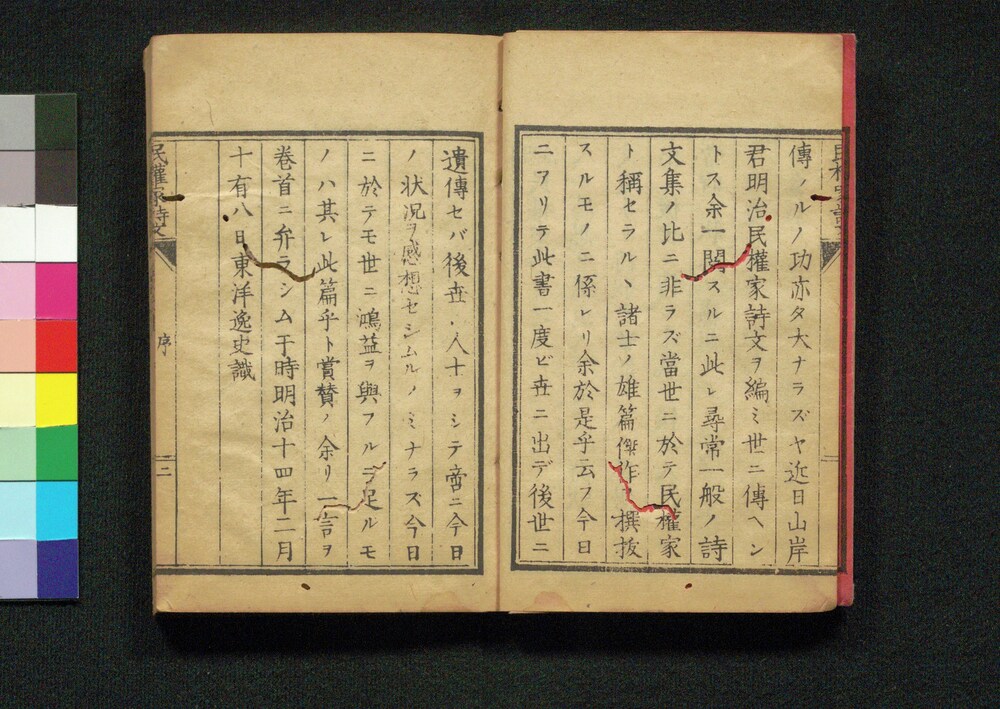 傳ノルノ功亦タ大ナラズヤ近日山岸
君明治民權家詩文ヲ編ミ世ニ傳ヘン
トス余一閲スルニ此レ尋常一般ノ詩
文集ノ比ニ非ラズ當世ニ於テ民權家
ト稱セラルヽ諸士ノ雄篇傑作ヲ撰拔
スルモノニ係レリ余於是乎云フ今日
ニアリテ此書一度ビ世ニ出デ後世ニ
遺傳セバ後世ノ人士ヲシテ啻ニ今日
ノ状況ヲ感想セシムルノミナラス今日
ニ於テモ世ニ鴻益ヲ與フルヲ足ルモ
ノハ其レ此篇乎ト賞賛ノ余リ一言ヲ
卷首ニ弁ラシム于時明治十四年二月
十有八日東洋逸史識
民權家詩文
序
二